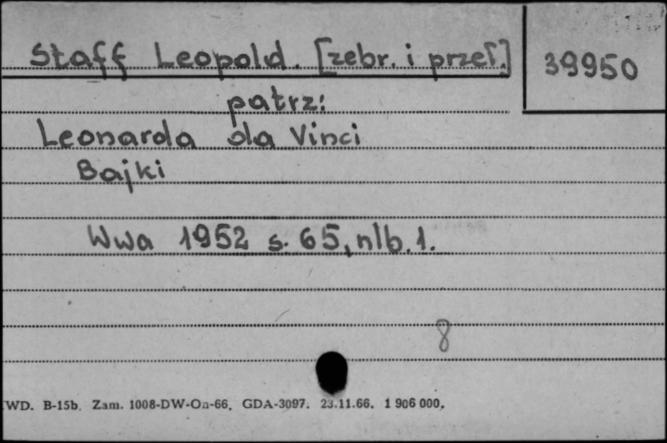 Staff Leopold. [zebr. i przeł.]
39950
patrz:
Leonarda da Vinci
Bajki
Wwa 1952 s. 65, nlb. 1.
8
WD. B-15b. Zam. 1008-DW-On-66. GDA-3097. 23.11.66. 1 906 000.